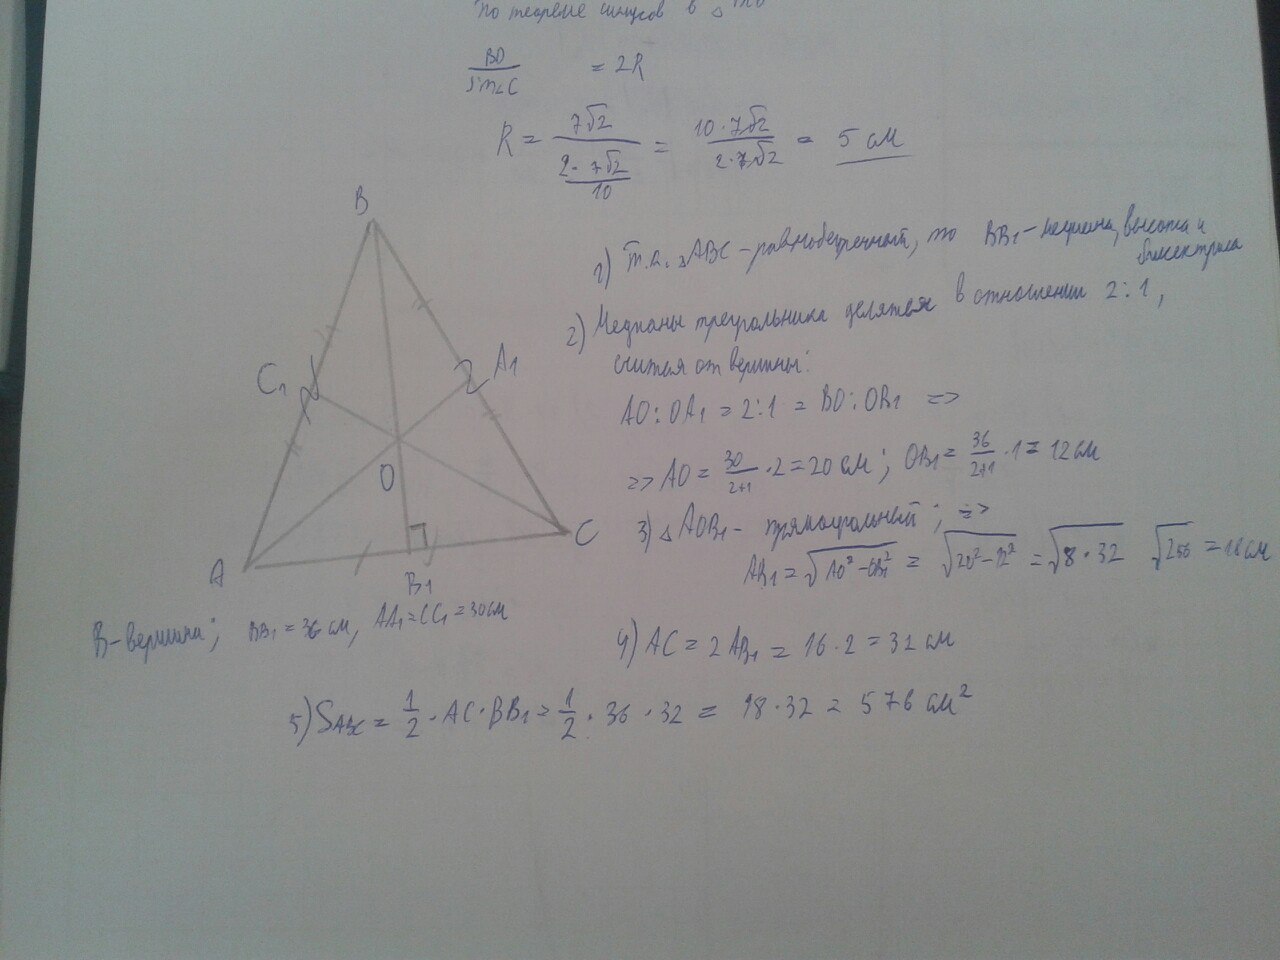 По теореме синусов в △
BD / sin∠C = 2R
R = 7√2 / (2 · 7√2/10) = 10·7√2 / 2·7√2 = 5 см
B
C₁
A₁
O
A
B₁
C
B-вершина; BB₁ = 36 см, AA₁ = CC₁ = 30 см
1) Т.к. △ABC - равнобедренный, то BB₁ - медиана, высота и биссектриса
2) Медианы треугольника делятся в отношении 2:1,
считая от вершины:
AO : OA₁ = 2:1 = BO : OB₁ =>
=> AO = 30/2+1 · 2 = 20 см; OB₁ = 36/2+1 · 1 = 12 см
3) △AOB₁ - прямоугольный; =>
AB₁ = √AO² - OB₁² = √20² - 12² = √8 · 32 √256 = 16 см
4) AC = 2AB₁ = 16 · 2 = 32 см
5) S ABC = 1/2 · AC · BB₁ = 1/2 · 36 · 32 = 18 · 32 = 576 см²